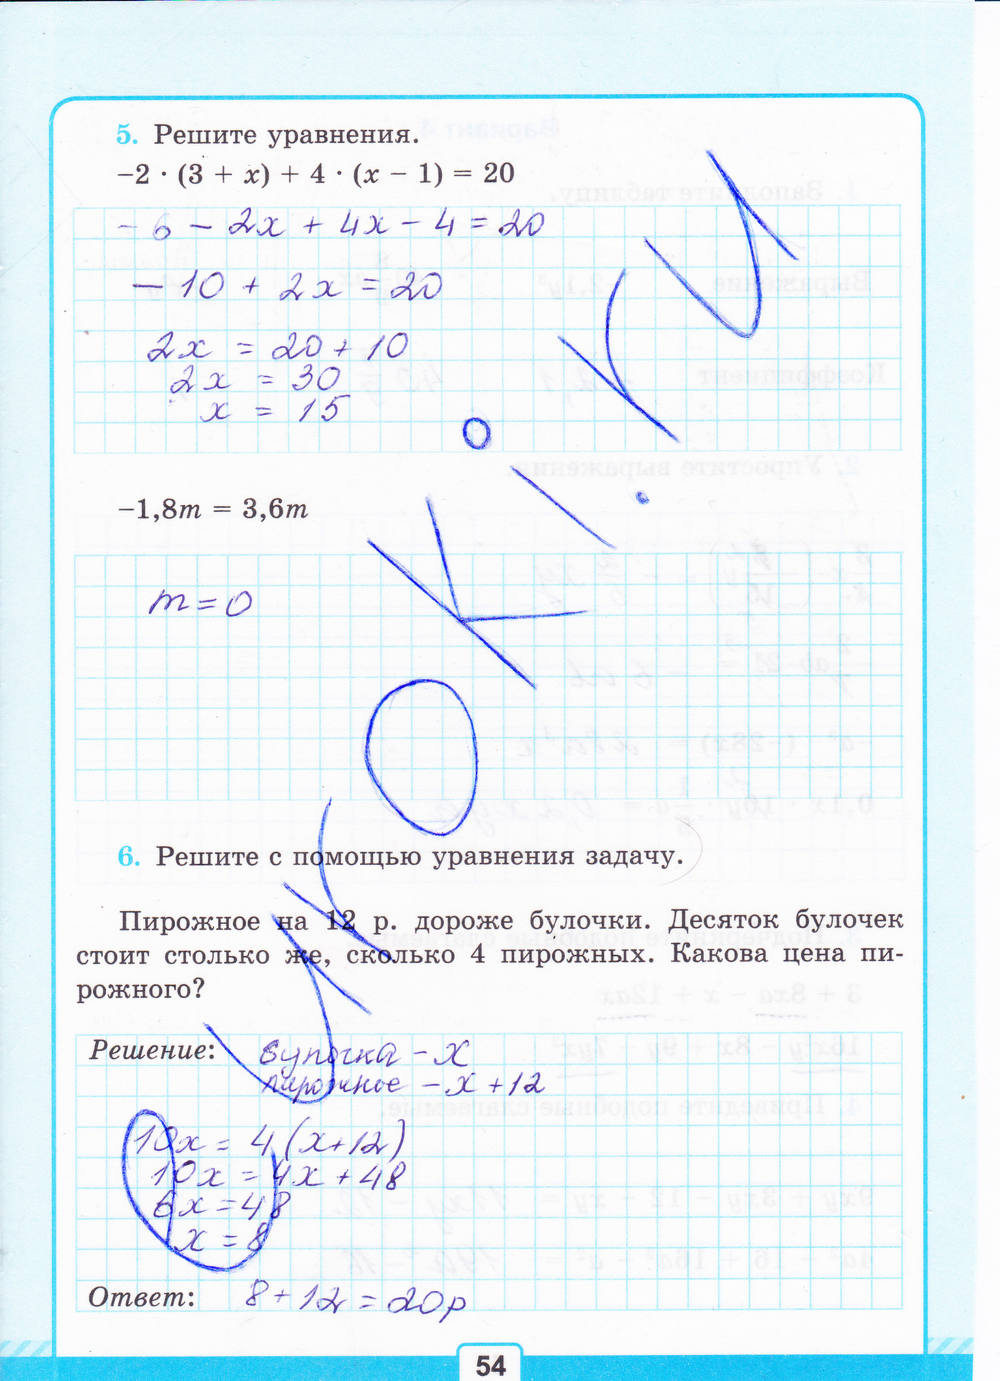 5. Решите уравнения.
−2 · (3 + x) + 4 · (x − 1) = 20
− 6 − 2x + 4x − 4 = 20
− 10 + 2x = 20
2x = 20 + 10
2x = 30
x = 15
−1,8m = 3,6m
m = 0
6. Решите с помощью уравнения задачу.
Пирожное на 12 р. дороже булочки. Десяток булочек
стоит столько же, сколько 4 пирожных. Какова цена пи-
рожного?
Решение: булочка − x
пирожное − x + 12
10x = 4 (x + 12)
10x = 4x + 48
6x = 48
x = 8
Ответ: 8 + 12 = 20р
54